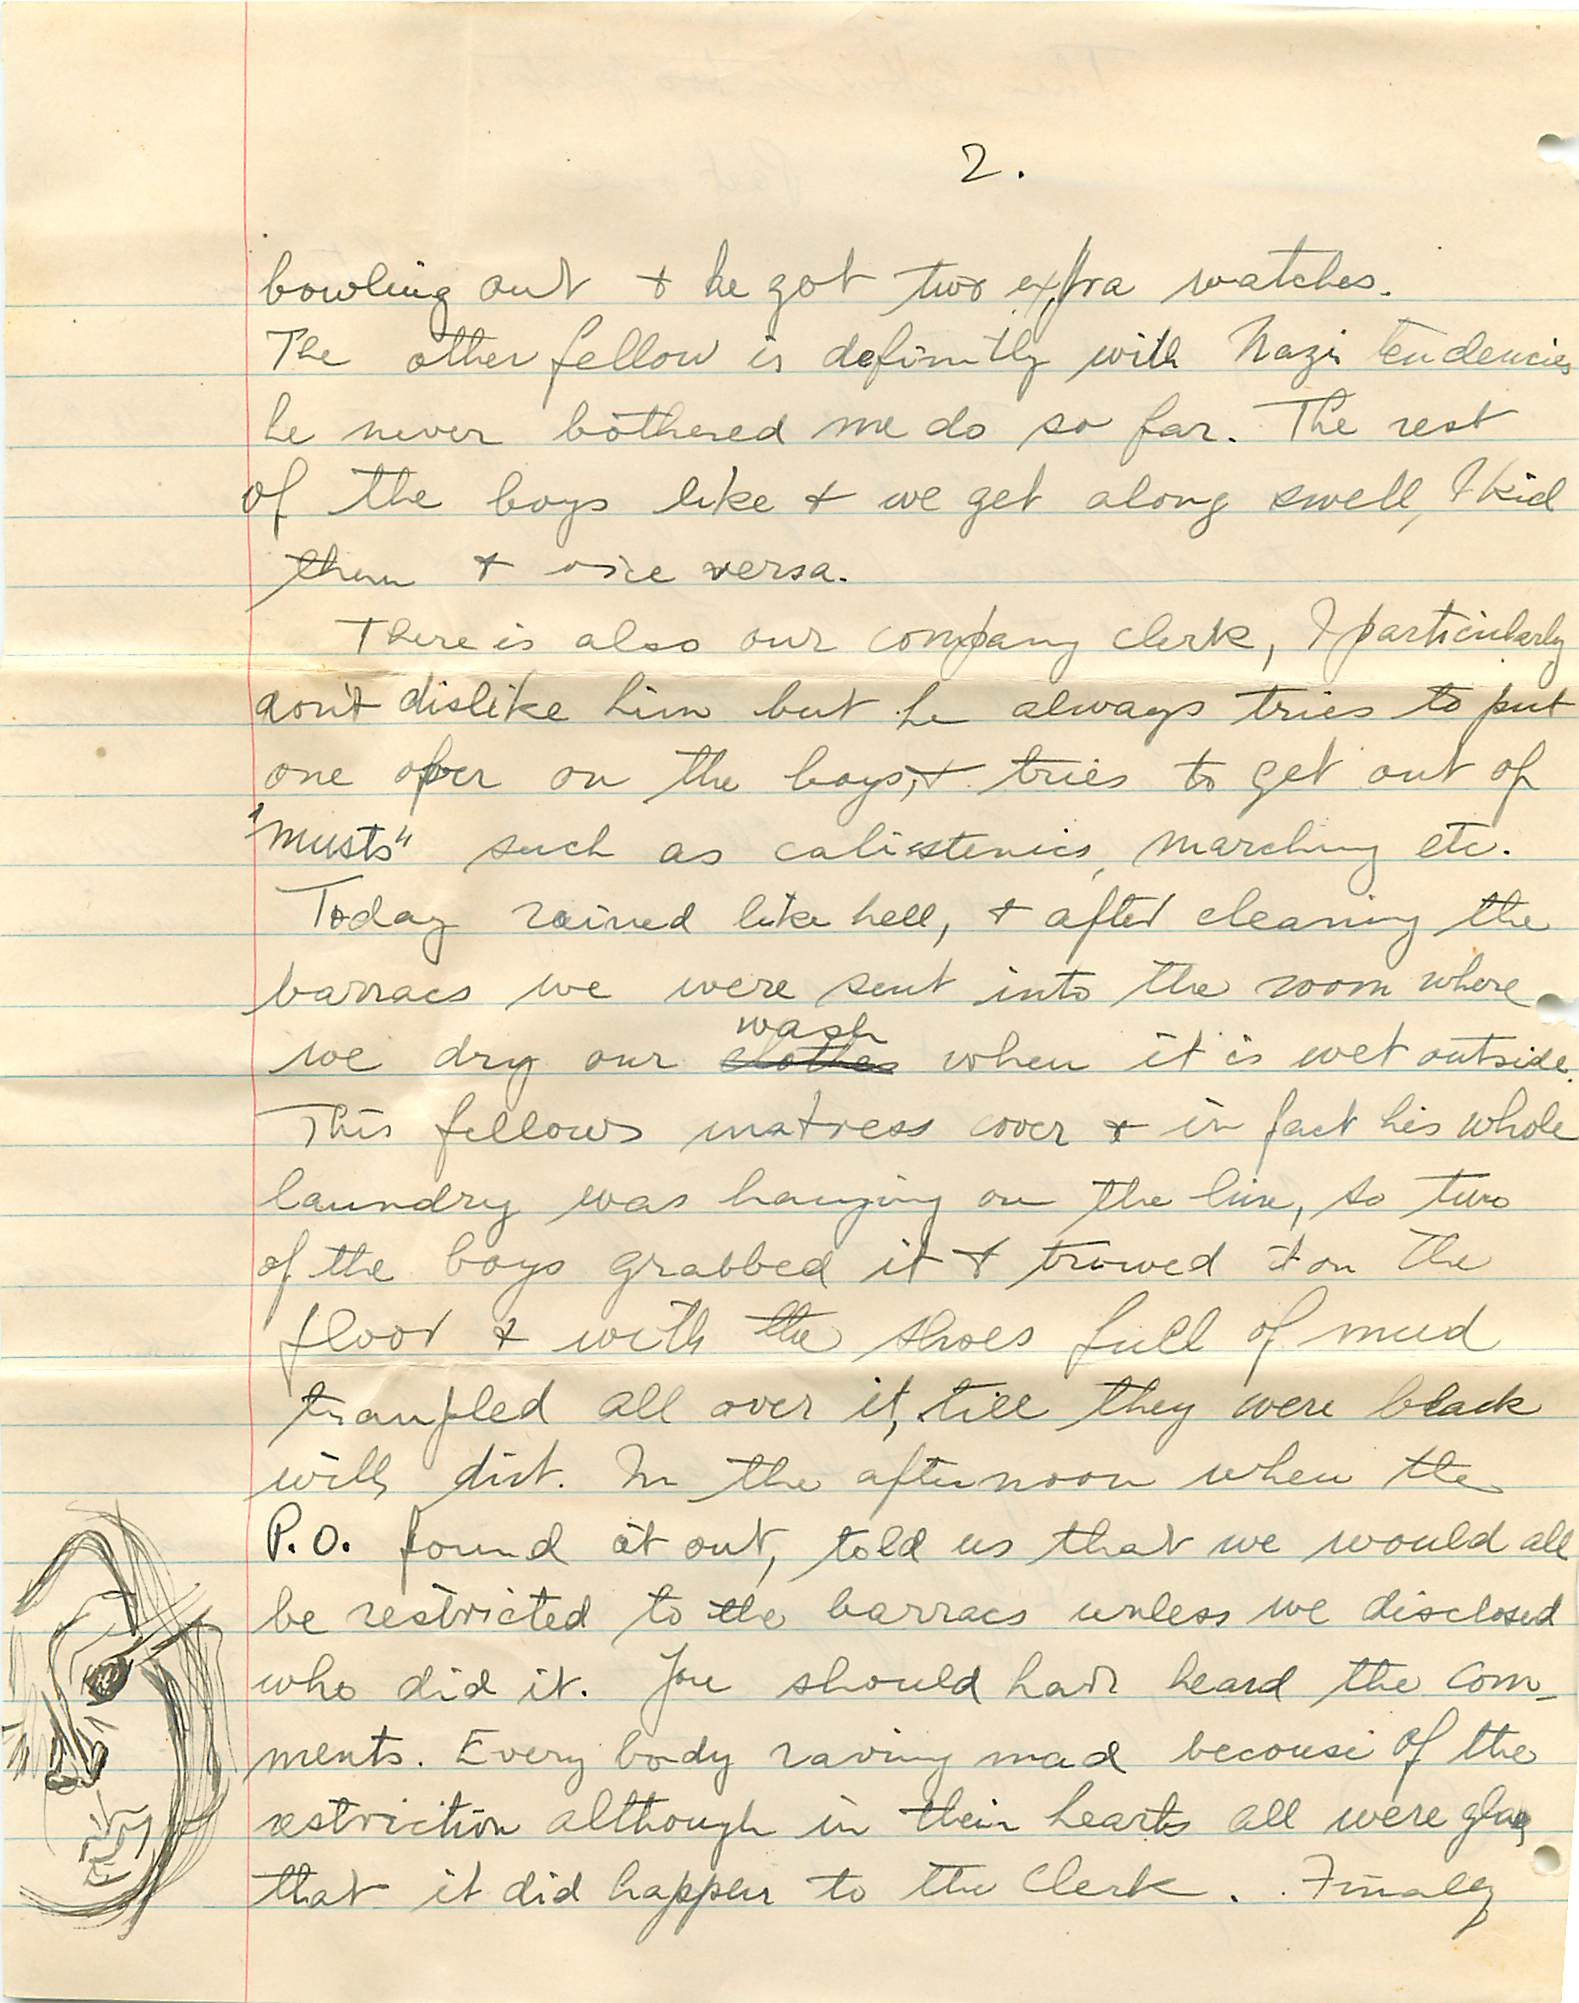 2.
bowling out & he got two extra watches.
The other fellow is definitly with Nazi tendencies
he never bothered me do so far. The rest
of the boys like & we get along swell, I kid
them & vice versa.
There is also our company clerk, I particularly
don't dislike him but he always tries to put
one over on the boys, & tries to get out of
"musts" such as calistenics, marching etc.
Today rained like hell, & after cleaning the
barracs we were sent into the room where
we dry our clothes wash when it is wet outside.
This fellows matress cover & in fact his whole
laundry was hanging on the line, so two
of the boys grabbed it & trowed it on the
floor & with the shoes full of mud
trampled all over it, till they were black
with dirt. In the afternoon when the
P.O. found it out, told us that we would all
be restricted to the barracs unless we disclosed
who did it. You should have heard the com-
ments. Every body raving mad becouse of the
restriction although in their hearts all were glad
that it did happen to the Clerk. Finaly